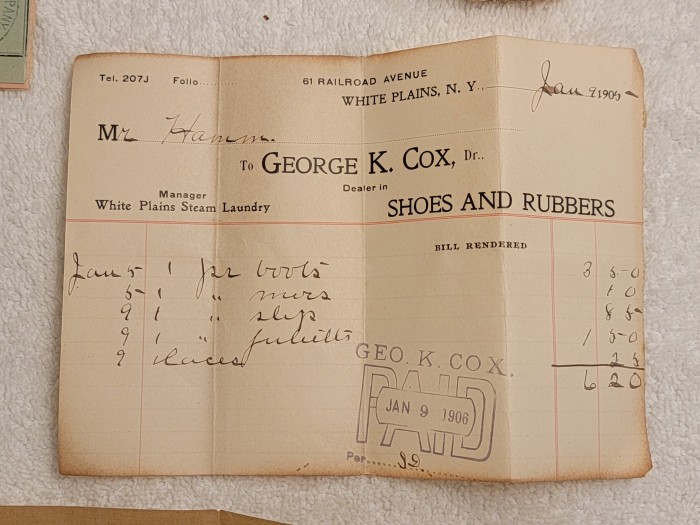 MPANY
Tel. 207J Folio..........
61 RAILROAD AVENUE
WHITE PLAINS, N. Y., Jan 9 1905
Mr Hamm.
To GEORGE K. COX, Dr..
Dealer in
SHOES AND RUBBERS
Manager
White Plains Steam Laundry
BILL RENDERED
Jan 5 1 pr boots 3 50
5 1 " 10
9 1 " slips 85
9 1 " julietts 1 50
9 laces 25
6 20
GEO. K. COX.
PAID
JAN 9 1906
Per